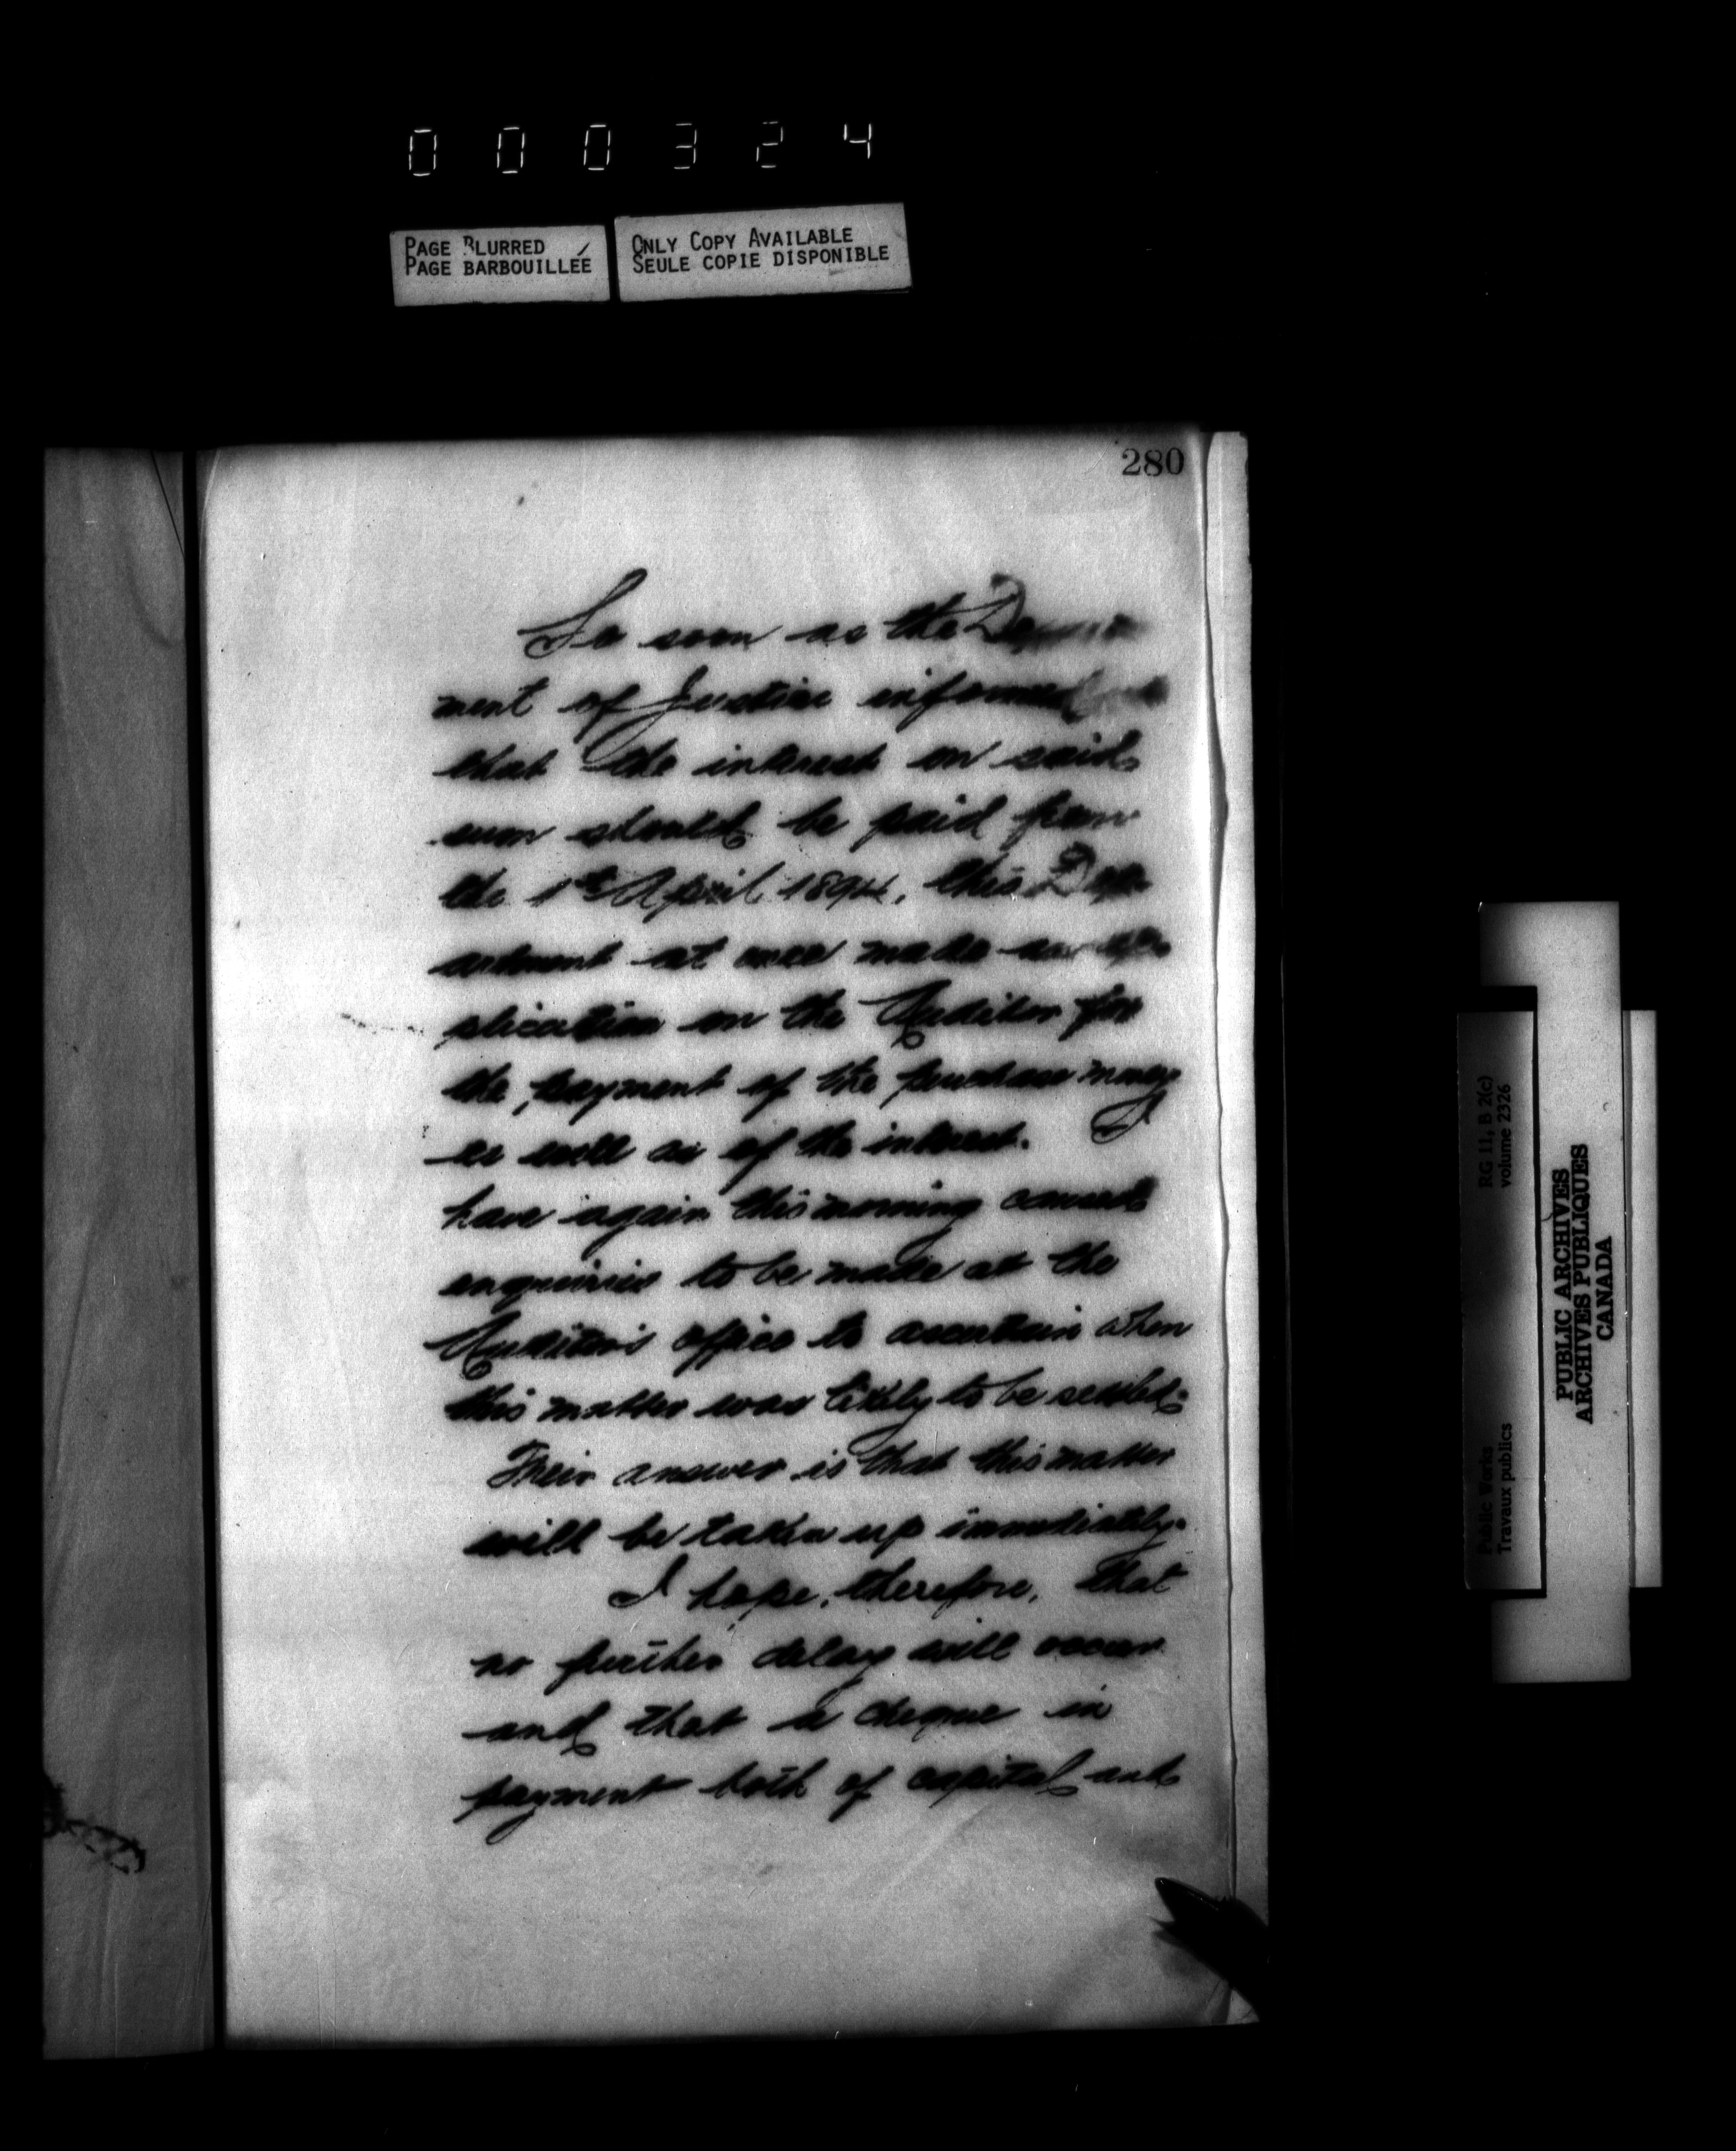 000324
PAGE BLURRED
PAGE BARBOUILLÉE
ONLY COPY AVAILABLE
SEULE COPIE DISPONIBLE
280
So soon as the
ment of Justice informed
that the interest on said
sum should be paid from
the 1st April 1894, this Dep
artment at once made an ap
plication on the Auditor for
the payment of the purchase money
as well as of the interest. I
have again this morning caused
enquiries to be made at the
Auditor's office to ascertain when
this matter was likely to be settled.
Their answer is that this matter
will be taken up immediately.
I hope, therefore, that
no further delay will occur
and that a cheque in
payment both of capital and
RG 11, B 2(c)
volume 2326
Public Works
Travaux publics
PUBLIC ARCHIVES
ARCHIVES PUBLIQUES
CANADA